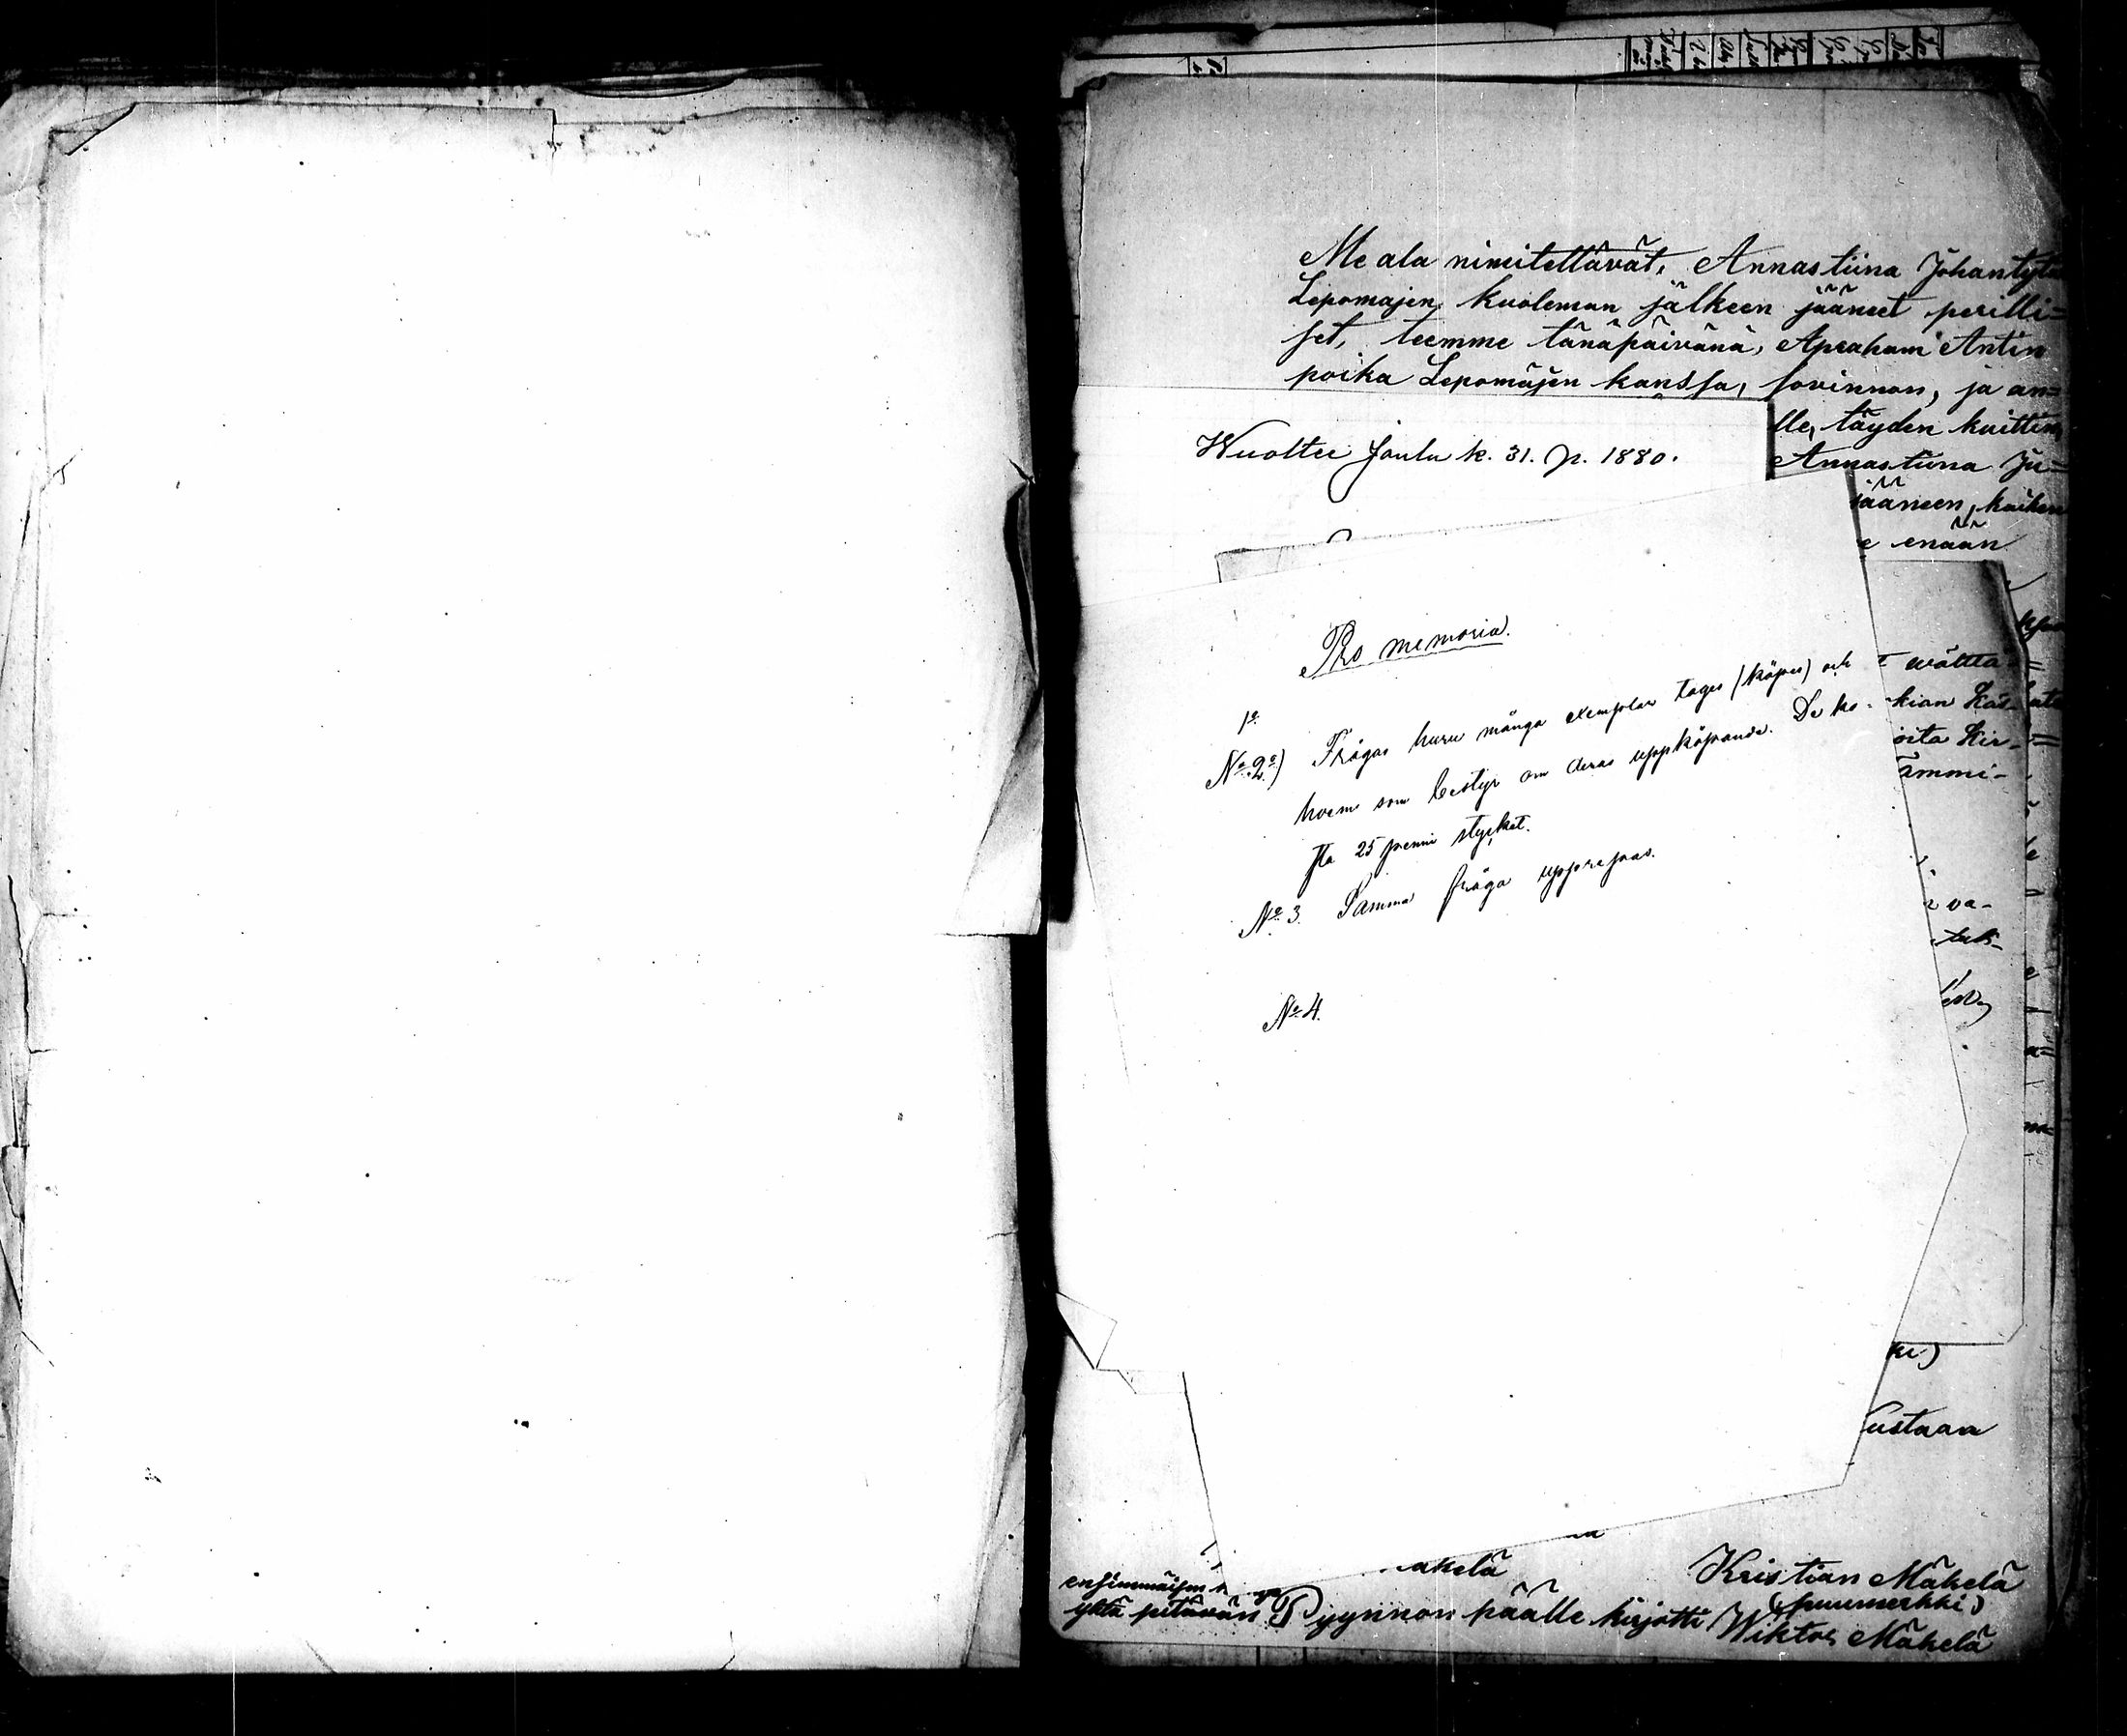 Me ala nimitettävät, Annastiina Johantytä
Lepomäjen kuoleman jälkeen jääneet perilli=
set, teemme tänäpäivänä, Apraham Antin
poika Lepomäjen kanssa, sovinnon, ja an=
lle, täyden kuittin
Wuoltee Joulu k. 31. p. 1880.
Annastiina Ju=
jääneen, kaiken
e enään
Pro memoria.
1o
No 2o) Frågas huru många exemplar tages (köpes) och
hvem som bestyr om deras uppköpande. De ko-
sta 25 penni stycket.
No 3. Samma fråga upprepas.
No 4.
t wälttä=
kian Käs-
oita Kir-
ämmi-
va-
ki)
ustaan
akelä
Kristian Mäkelä
(puumerkki)
ensimmäisen
yhtä pitävän Pyynnön päälle kirjotti Wiktor Mäkelä